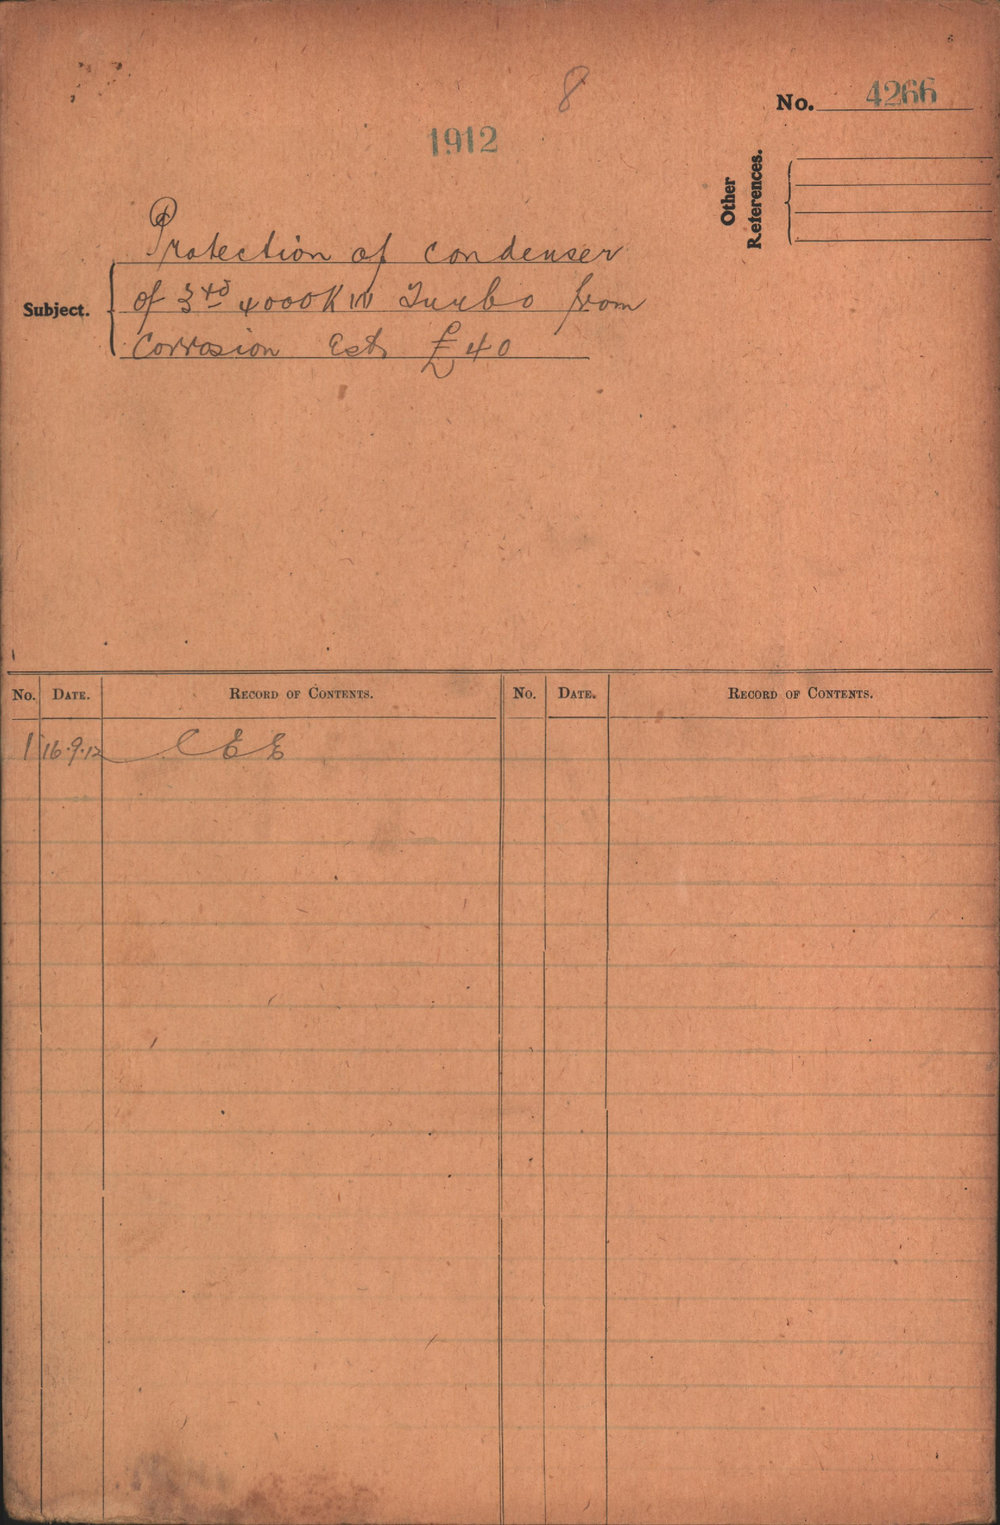 8
No. 4266
1912
Other References.
Protection of condenser
Subject. of 3rd 4000KW Turbo from
Corrosion Est. £40
No. DATE. RECORD OF CONTENTS. No. DATE. RECORD OF CONTENTS.
1 16.9.12 C E E